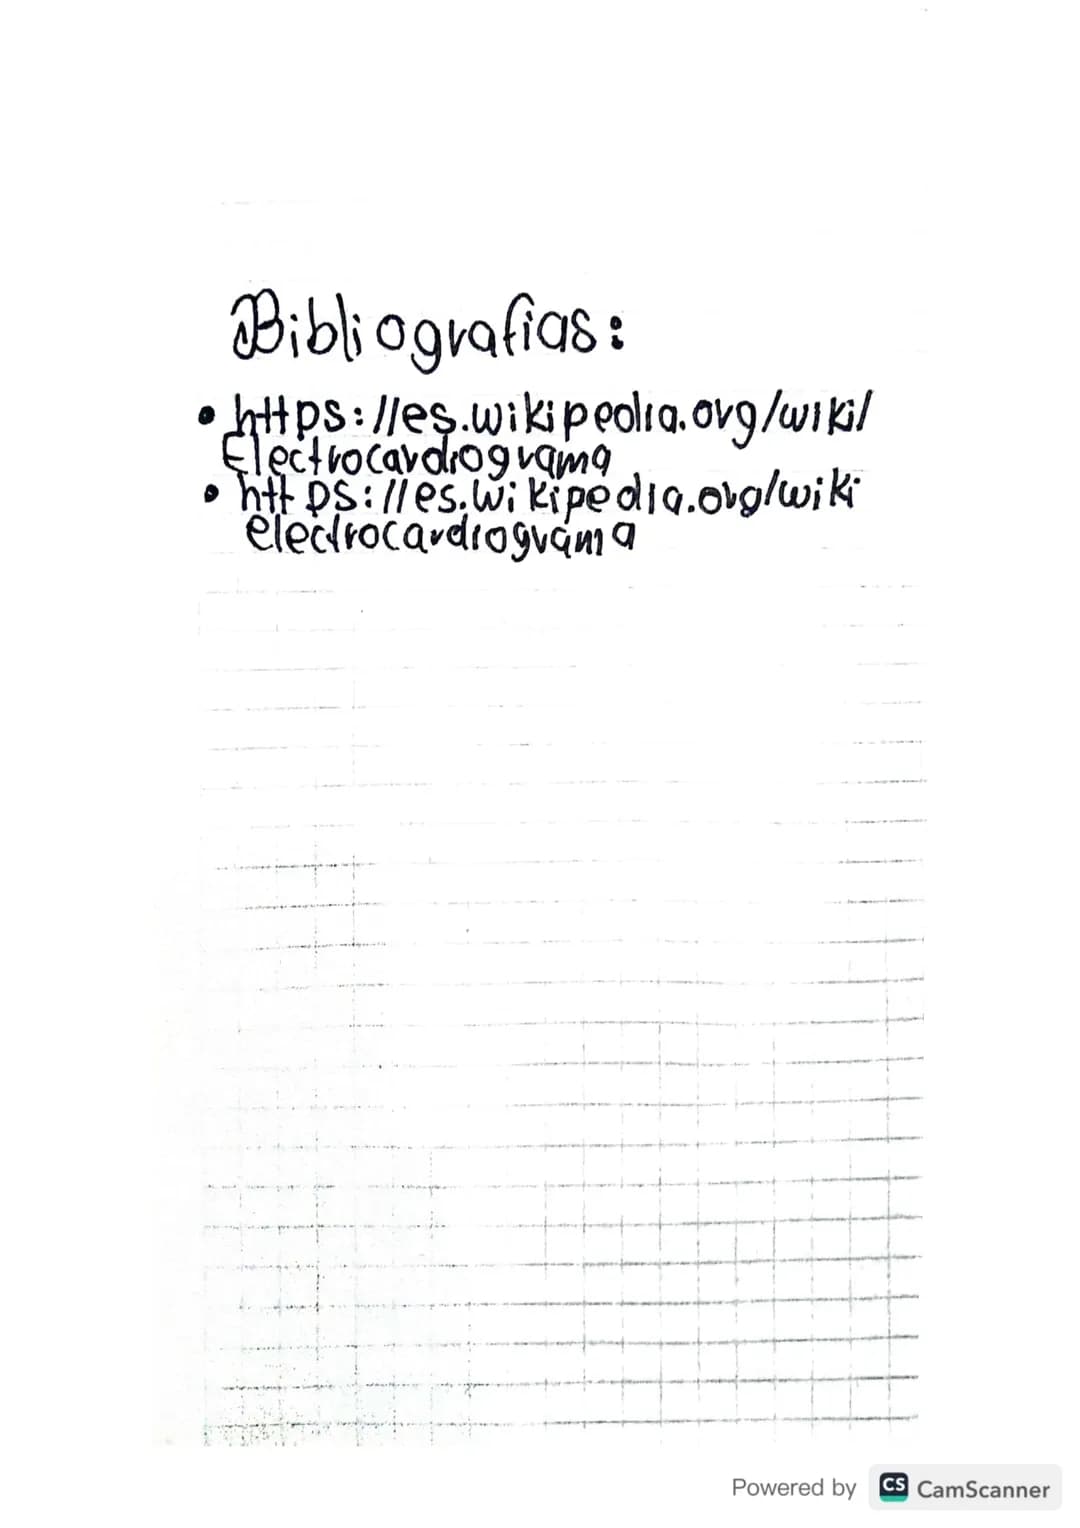 Bibliografias:
• https://es.wikipedia.org/wiki/
Electrocardiograma
• https://es.wikipedia.org/wiki
electrocardiograma
Powered by CS CamScanner